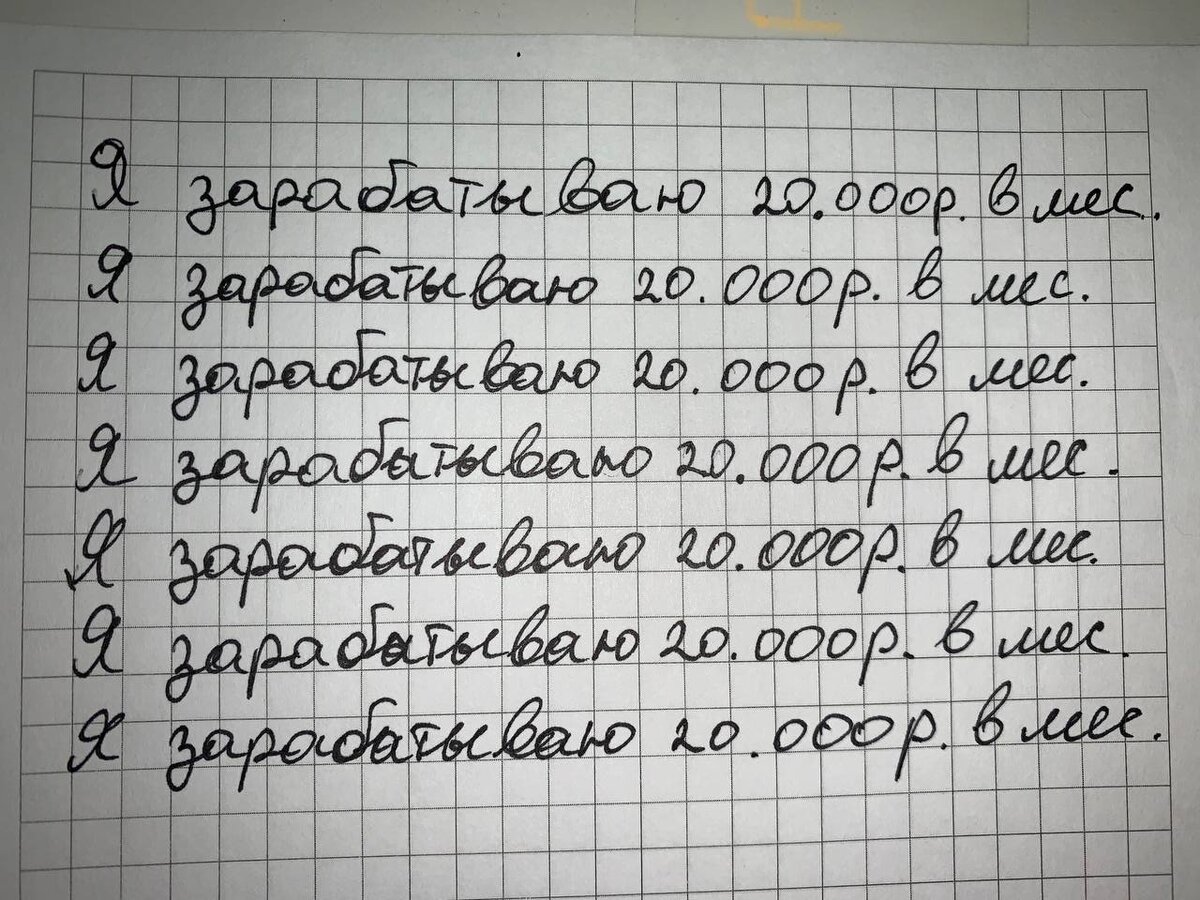 Я зарабатываю 20.000р. в мес.
Я зарабатываю 20.000р. в мес.
Я зарабатываю 20.000р. в мес.
Я зарабатываю 20.000р. в мес.
Я зарабатываю 20.000р. в мес.
Я зарабатываю 20.000р. в мес.
Я зарабатываю 20.000р. в мес.